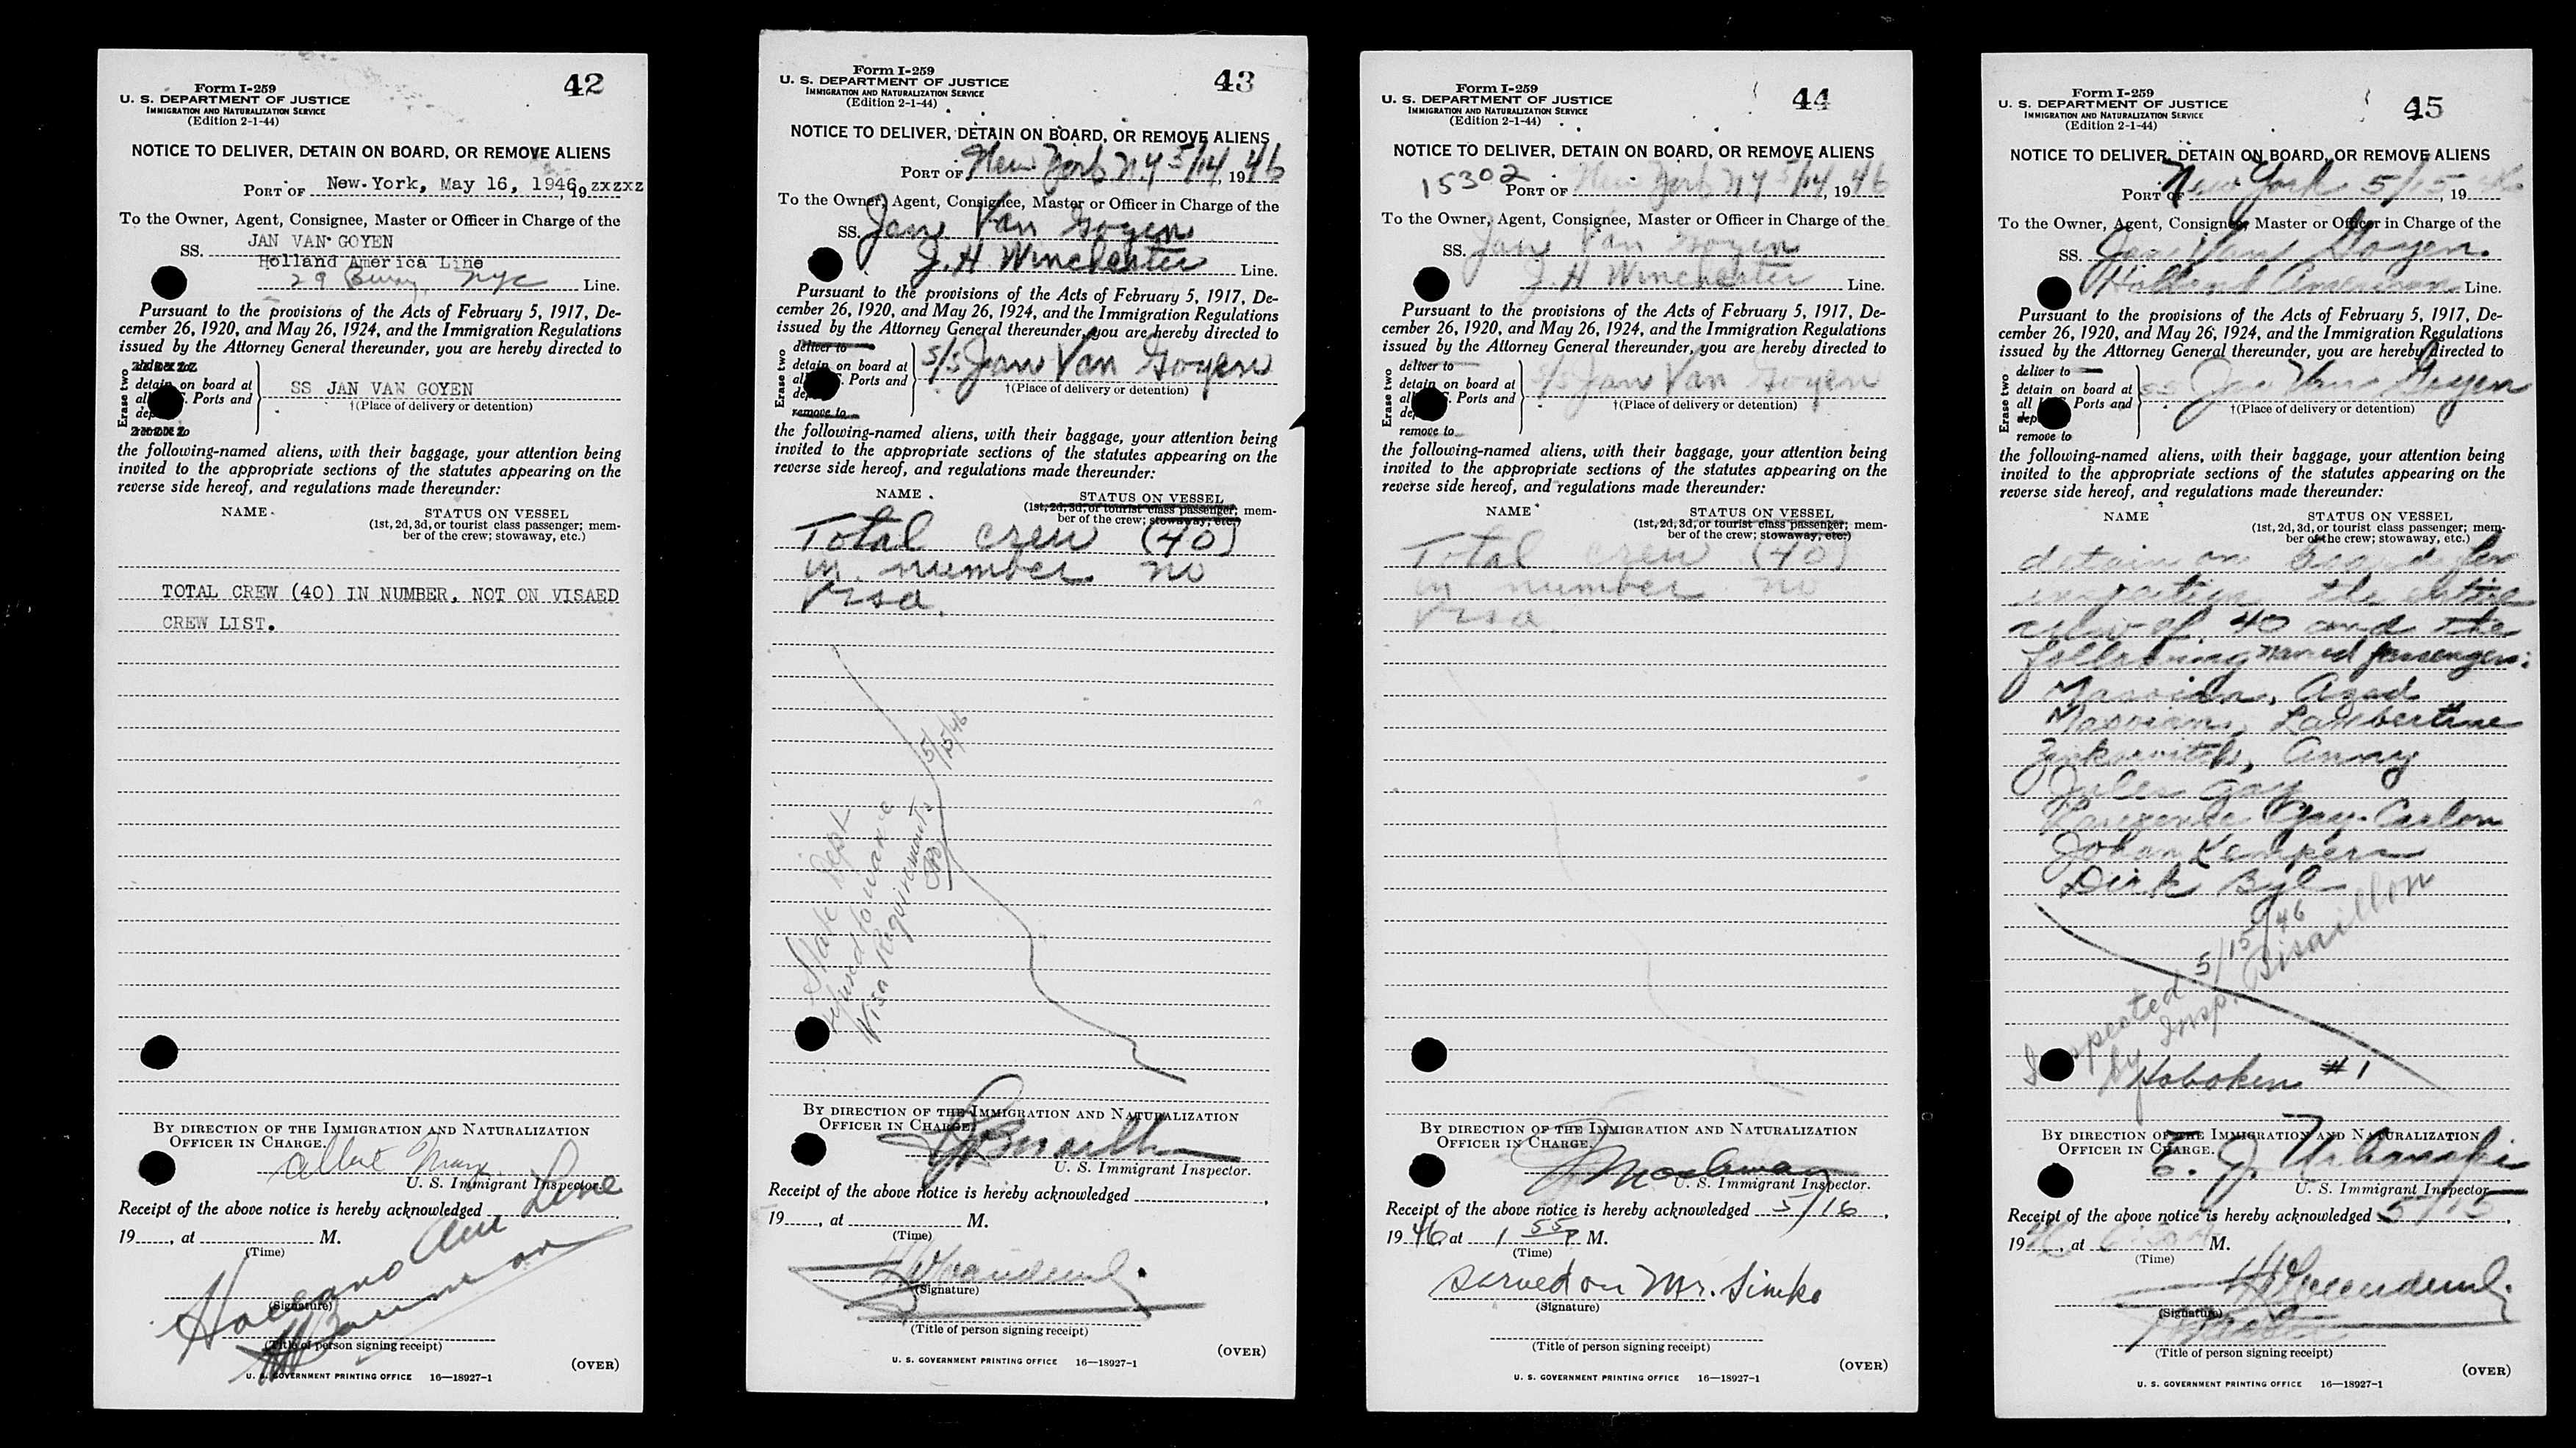 42
Form I-259
U. S. DEPARTMENT OF JUSTICE
IMMIGRATION AND NATURALIZATION SERVICE
(Edition 2-1-44)
NOTICE TO DELIVER, DETAIN ON BOARD, OR REMOVE ALIENS
PORT OF New York, May 16, 1946, 19 zxzxz
To the Owner, Agent, Consignee, Master or Officer in Charge of the
SS. JAN VAN GOYEN
Holland America Line
29 Bway, NYC Line.
Pursuant to the provisions of the Acts of February 5, 1917, De-
cember 26, 1920, and May 26, 1924, and the Immigration Regulations
issued by the Attorney General thereunder, you are hereby directed to
Erase two
detain on board at
Ports and
SS JAN VAN GOYEN
†(Place of delivery or detention)
remove to
the following-named aliens, with their baggage, your attention being
invited to the appropriate sections of the statutes appearing on the
reverse side hereof, and regulations made thereunder:
NAME STATUS ON VESSEL
(1st, 2d, 3d, or tourist class passenger; mem-
ber of the crew; stowaway, etc.)
TOTAL CREW (40) IN NUMBER, NOT ON VISAED
CREW LIST.
BY DIRECTION OF THE IMMIGRATION AND NATURALIZATION
OFFICER IN CHARGE.
Albert
U. S. Immigrant Inspector.
Receipt of the above notice is hereby acknowledged
19 , at M.
(Time)
Holland Am Line
(Signature)
(Title of person signing receipt)
(OVER)
U. S. GOVERNMENT PRINTING OFFICE 16—18927-1
43
Form I-259
U. S. DEPARTMENT OF JUSTICE
IMMIGRATION AND NATURALIZATION SERVICE
(Edition 2-1-44)
NOTICE TO DELIVER, DETAIN ON BOARD, OR REMOVE ALIENS
PORT OF New York N.Y 5/14, 1946
To the Owner, Agent, Consignee, Master or Officer in Charge of the
SS. Jan Van Goyen
J. H Winchester Line.
Pursuant to the provisions of the Acts of February 5, 1917, De-
cember 26, 1920, and May 26, 1924, and the Immigration Regulations
issued by the Attorney General thereunder, you are hereby directed to
Erase two
deliver to
detain on board at
Ports and
remove to
S/S Jan Van Goyen
†(Place of delivery or detention)
the following-named aliens, with their baggage, your attention being
invited to the appropriate sections of the statutes appearing on the
reverse side hereof, and regulations made thereunder:
NAME STATUS ON VESSEL
(1st, 2d, 3d, or tourist class passenger; mem-
ber of the crew; stowaway, etc.)
Total crew (40)
in number no
visa.
State Dept
refused to waive
Visa Requirements 5/15/46
BY DIRECTION OF THE IMMIGRATION AND NATURALIZATION
OFFICER IN CHARGE.
U. S. Immigrant Inspector.
Receipt of the above notice is hereby acknowledged
19 , at M.
(Time)
(Signature)
(Title of person signing receipt)
(OVER)
U. S. GOVERNMENT PRINTING OFFICE 16—18927-1
44
Form I-259
U. S. DEPARTMENT OF JUSTICE
IMMIGRATION AND NATURALIZATION SERVICE
(Edition 2-1-44)
NOTICE TO DELIVER, DETAIN ON BOARD, OR REMOVE ALIENS
15302
PORT OF New York N Y 5/14, 1946
To the Owner, Agent, Consignee, Master or Officer in Charge of the
SS. Jan Van Goyen
J. H Winchester Line.
Pursuant to the provisions of the Acts of February 5, 1917, De-
cember 26, 1920, and May 26, 1924, and the Immigration Regulations
issued by the Attorney General thereunder, you are hereby directed to
Erase two
deliver to
detain on board at
Ports and
remove to
S/S Jan Van Goyen
†(Place of delivery or detention)
the following-named aliens, with their baggage, your attention being
invited to the appropriate sections of the statutes appearing on the
reverse side hereof, and regulations made thereunder:
NAME STATUS ON VESSEL
(1st, 2d, 3d, or tourist class passenger; mem-
ber of the crew; stowaway, etc.)
Total crew (40)
in number no
visa.
BY DIRECTION OF THE IMMIGRATION AND NATURALIZATION
OFFICER IN CHARGE.
U. S. Immigrant Inspector.
Receipt of the above notice is hereby acknowledged 5/16,
1946, at 1 55 P M.
(Time)
served on Mr. Simko
(Signature)
(Title of person signing receipt)
(OVER)
U. S. GOVERNMENT PRINTING OFFICE 16—18927-1
45
Form I-259
U. S. DEPARTMENT OF JUSTICE
IMMIGRATION AND NATURALIZATION SERVICE
(Edition 2-1-44)
NOTICE TO DELIVER, DETAIN ON BOARD, OR REMOVE ALIENS
PORT OF New York 5/15 46, 19
To the Owner, Agent, Consignee, Master or Officer in Charge of the
SS. Jan Van Goyen.
Holland American Line.
Pursuant to the provisions of the Acts of February 5, 1917, De-
cember 26, 1920, and May 26, 1924, and the Immigration Regulations
issued by the Attorney General thereunder, you are hereby directed to
Erase two
deliver to
detain on board at
all Ports and
remove to
SS Jan Van Goyen
†(Place of delivery or detention)
the following-named aliens, with their baggage, your attention being
invited to the appropriate sections of the statutes appearing on the
reverse side hereof, and regulations made thereunder:
NAME STATUS ON VESSEL
(1st, 2d, 3d, or tourist class passenger; mem-
ber of the crew; stowaway, etc.)
detain on board for
inspection the entire
crew of 40 and the
following named passengers:
Azad
Lambertine
Anny
Jules Gay
Gay-Carlon
Johan Kempers
Dirk Byl
Inspected 5/15/46
by Insp.
Hoboken #1
BY DIRECTION OF THE IMMIGRATION AND NATURALIZATION
OFFICER IN CHARGE.
E. J. Urbanski
U. S. Immigrant Inspector.
Receipt of the above notice is hereby acknowledged 5/15,
1946, at M.
(Time)
(Signature)
(Title of person signing receipt)
(OVER)
U. S. GOVERNMENT PRINTING OFFICE 16—18927-1